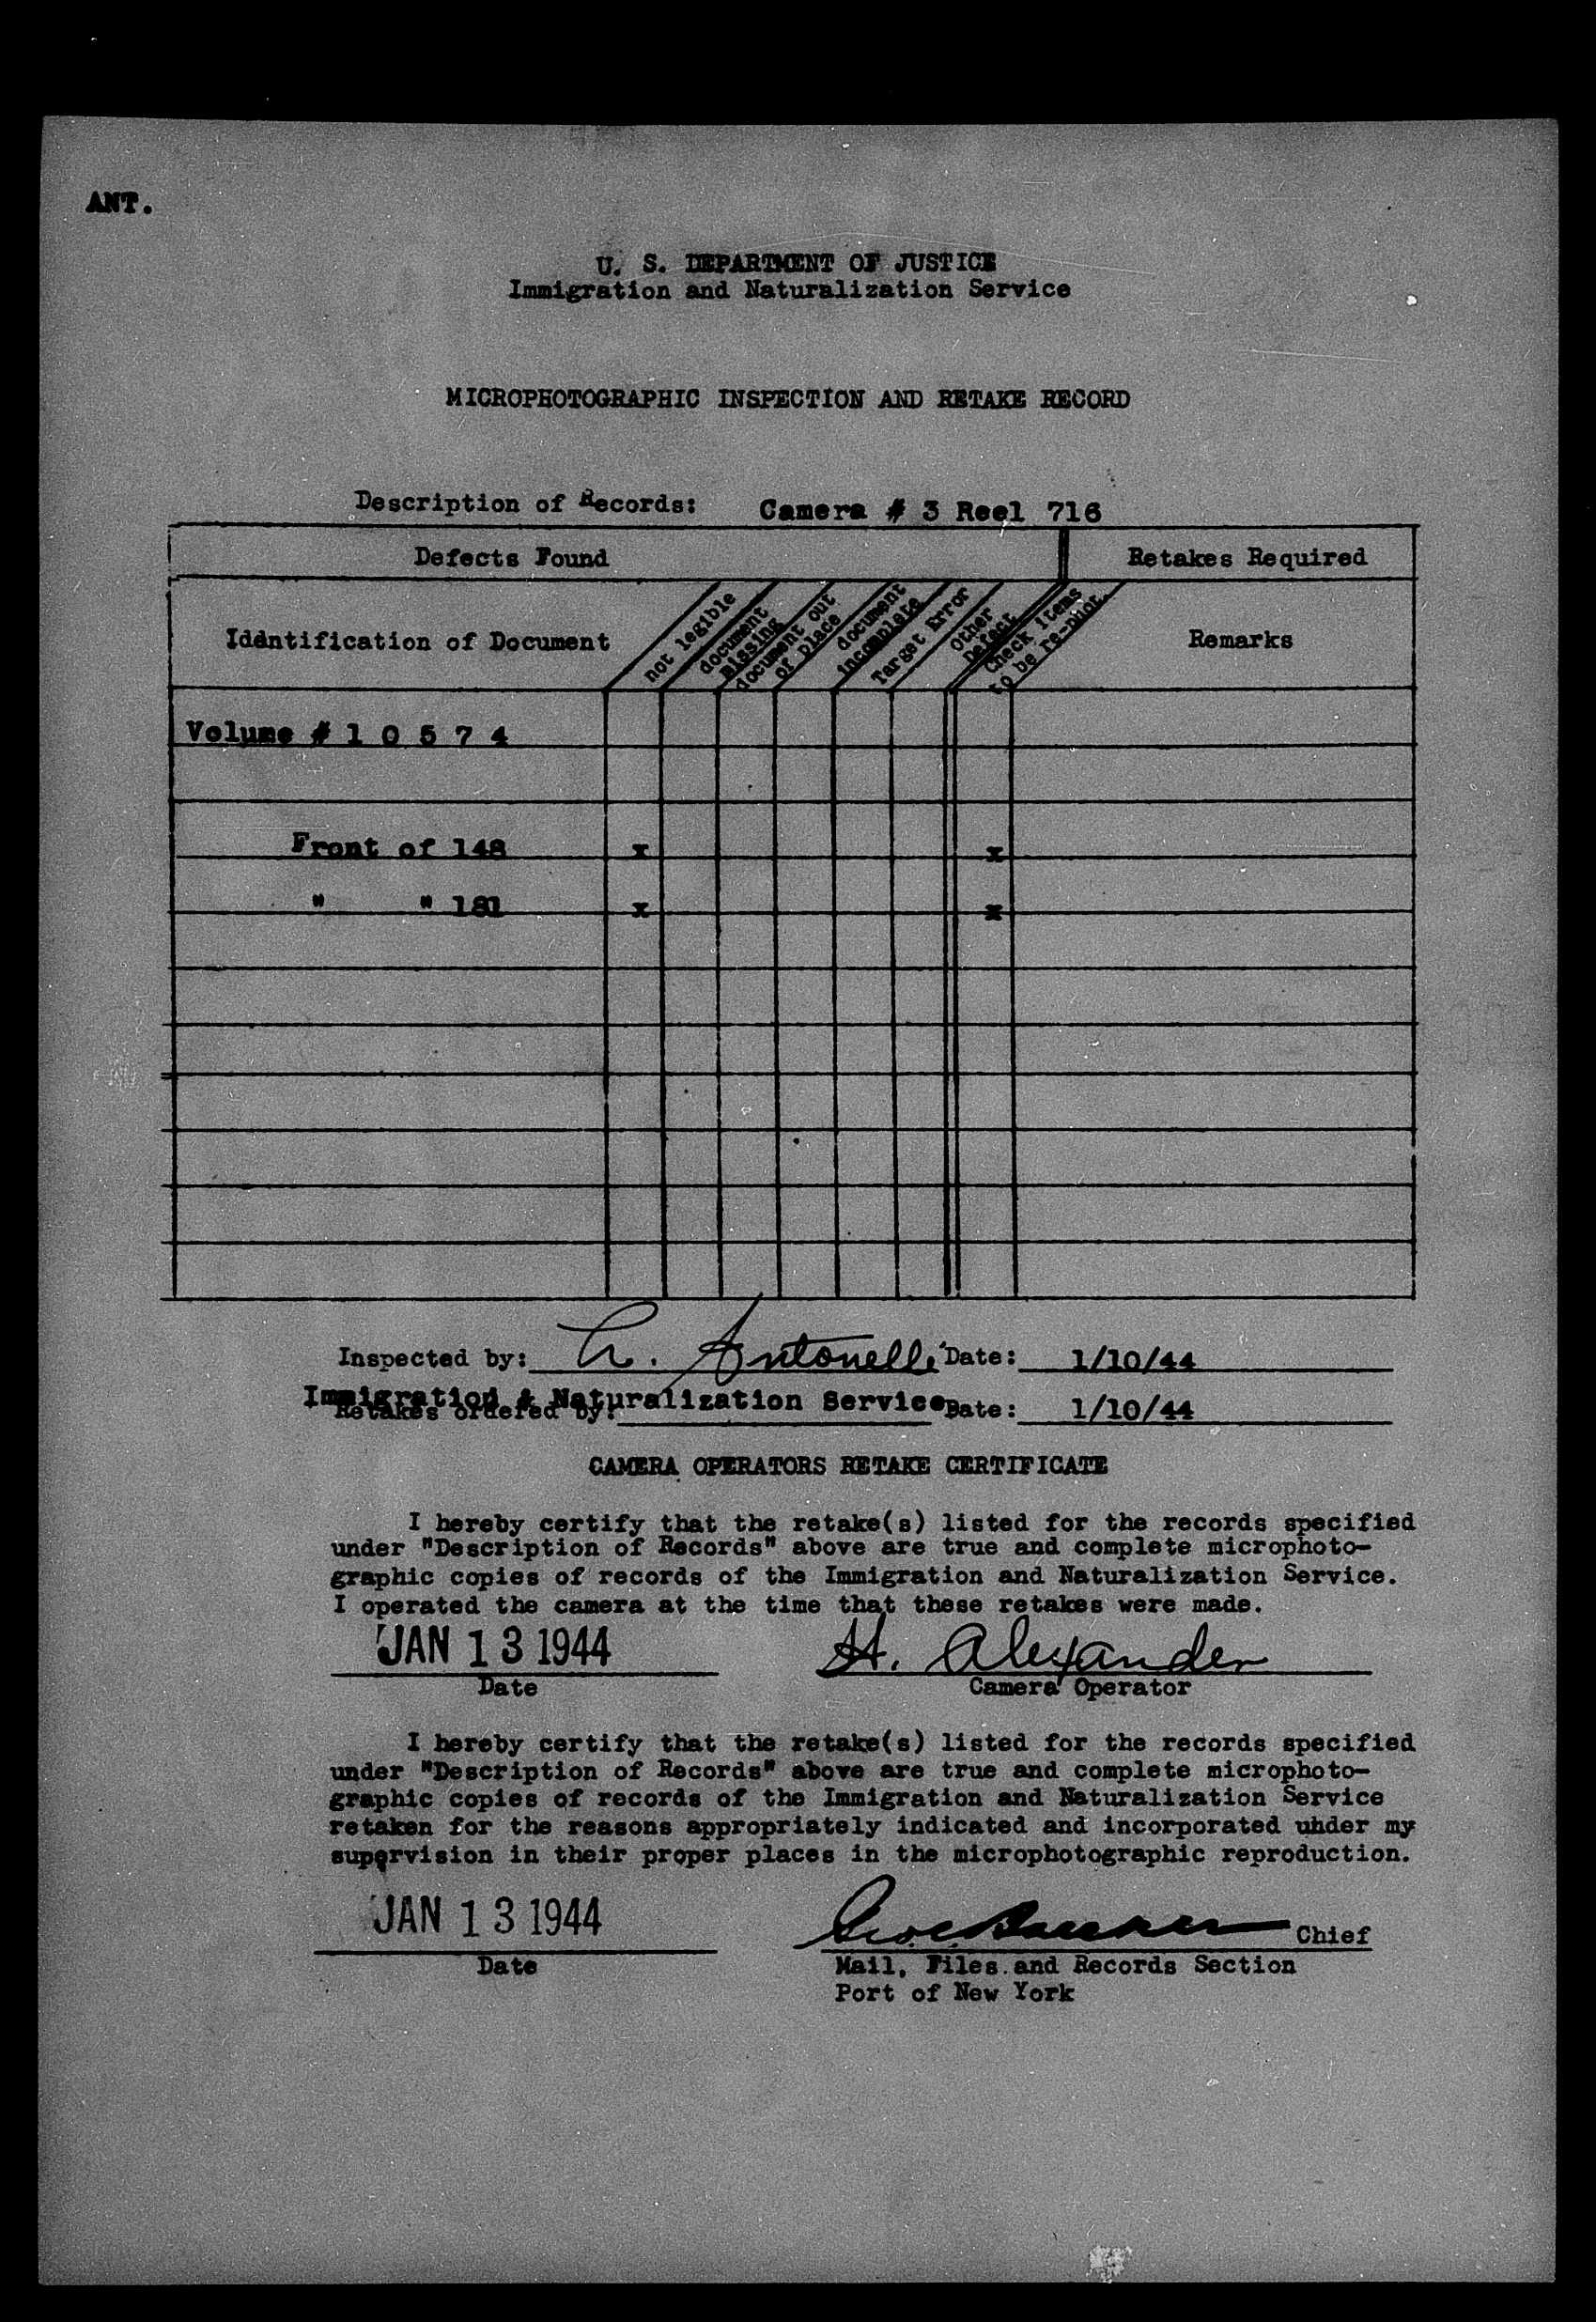 ANT.
U. S. DEPARTMENT OF JUSTICE
Immigration and Naturalization Service
MICROPHOTOGRAPHIC INSPECTION AND RETAKE RECORD
Description of Records: Camera # 3 Reel 716
Defects Found Retakes Required
Iddntification of Document
not legible
document missing
document out of place
document incomplete
Target Error
Other Defect
Check items to be re-phot.
Remarks
Volume # 1 0 5 7 4
Front of 148 x x
" " 181 x x
Inspected by: Antonelli Date: 1/10/44
Immigration & Naturalization Service
Retakes ordered by: Date: 1/10/44
CAMERA OPERATORS RETAKE CERTIFICATE
I hereby certify that the retake(s) listed for the records specified
under "Description of Records" above are true and complete microphoto-
graphic copies of records of the Immigration and Naturalization Service.
I operated the camera at the time that these retakes were made.
JAN 13 1944 H. Alexander
Date Camera Operator
I hereby certify that the retake(s) listed for the records specified
under "Description of Records" above are true and complete microphoto-
graphic copies of records of the Immigration and Naturalization Service
retaken for the reasons appropriately indicated and incorporated uhder my
supervision in their proper places in the microphotographic reproduction.
JAN 13 1944 Chief
Date Mail, Files and Records Section
Port of New York